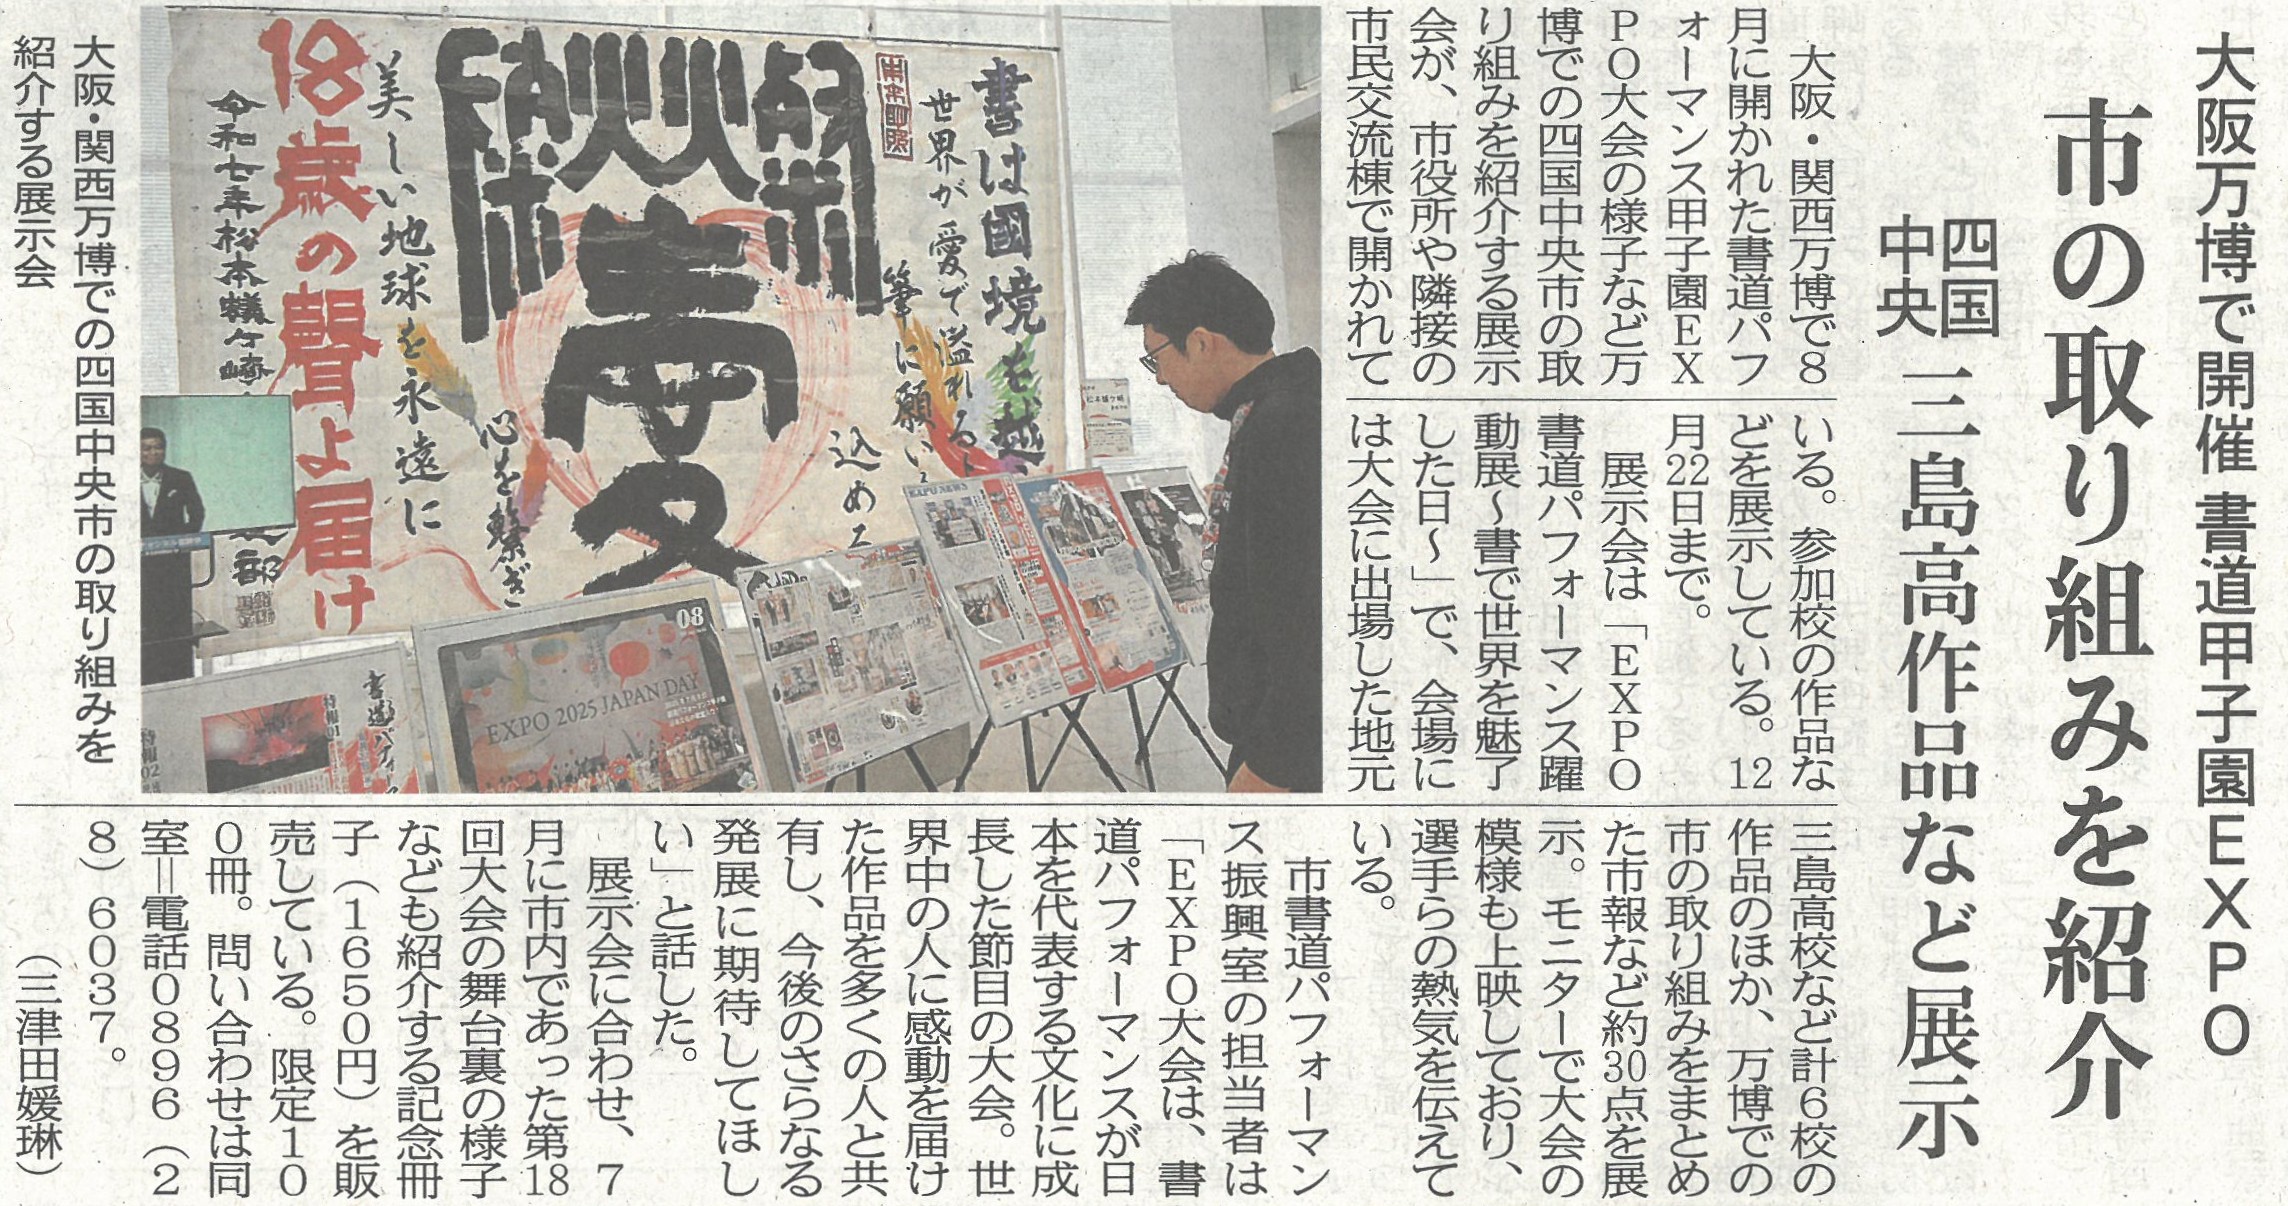 大阪万博で開催 書道甲子園EXPO
市の取り組みを紹介
四国
中央
三島高作品など展示
大阪・関西万博で8
月に開かれた書道パフ
ォーマンス甲子園EX
PO大会の様子など万
博での四国中央市の取
り組みを紹介する展示
会が、市役所や隣接の
市民交流棟で開かれて
いる。参加校の作品な
どを展示している。12
月22日まで。
展示会は「EXPO
書道パフォーマンス躍
動展～書で世界を魅了
した日～」で、会場に
は大会に出場した地元
三島高校など計6校の
作品のほか、万博での
市の取り組みをまとめ
た市報など約30点を展
示。モニターで大会の
模様も上映しており、
選手らの熱気を伝えて
いる。
市書道パフォーマン
ス振興室の担当者は
「EXPO大会は、書
道パフォーマンスが日
本を代表する文化に成
長した節目の大会。世
界中の人に感動を届け
た作品を多くの人と共
有し、今後のさらなる
発展に期待してほし
い」と話した。
展示会に合わせ、7
月に市内であった第18
回大会の舞台裏の様子
なども紹介する記念冊
子（1650円）を販
売している。限定10
0冊。問い合わせは同
室＝電話0896（2
8）6037。
（三津田媛琳）
書は國境を越
世界が愛で溢れる
筆に願い
込め
愛
心を繋ぎ
美しい地球を永遠に
18歳の聲よ届け
令和七年松本蟻ケ崎
部
EXPO NEWS
08
EXPO 2025 JAPAN DAY
特報01
特報02
大阪・関西万博での四国中央市の取り組みを
紹介する展示会